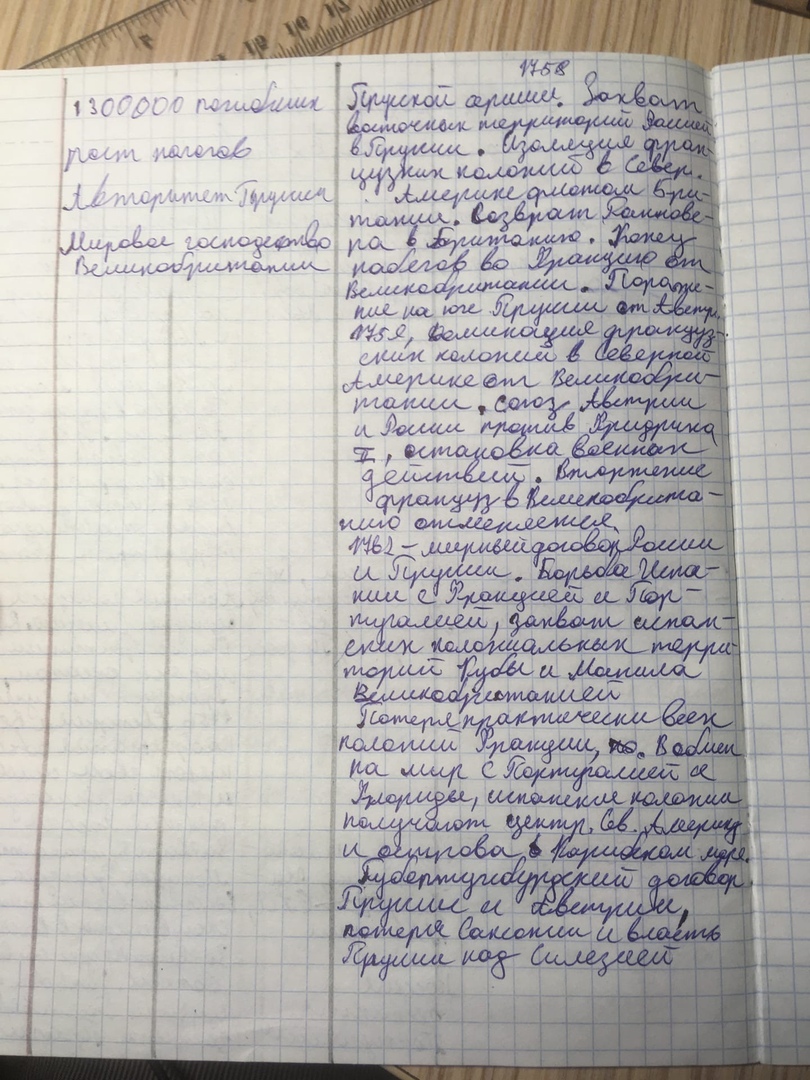 1300000 погибших
рост налогов
Авторитет Пруссии
Мировое господство
Великобритании
1758
Прусской армии. Захват
восточных территорий Россией
в Пруссии. Изоляция фран-
цузких колоний в Север.
Америке флотом Бри-
тании. Возврат Ганнове-
ра в Британию. Конец
набегов во Францию от
Великобритании. Пораже-
ние на юге Пруссии от Австр.
1759, доминация француз-
ских колоний в Северной
Америке от Великобри-
тании. союз Австрии
и России против Фридриха
II, остановка военных
действий. Вторжение
француз в Великобрита-
нию отменяется.
1762 – мирный договор России
и Пруссии. Борьба Испа-
нии с Францией и Пор-
тугалией, захват испан-
ских колониальных терри-
торий Кубы и Манила
Великобританией
Потеря практически всех
колоний Франции, В обмен
на мир с Португалией и
Флориды, испанские колонии
получают центр. Сев. Америку
и острова в Карибском море.
Губертусбургский договор
Пруссии и Австрии,
потеря Саксонии и власть
Пруссии над Силезией